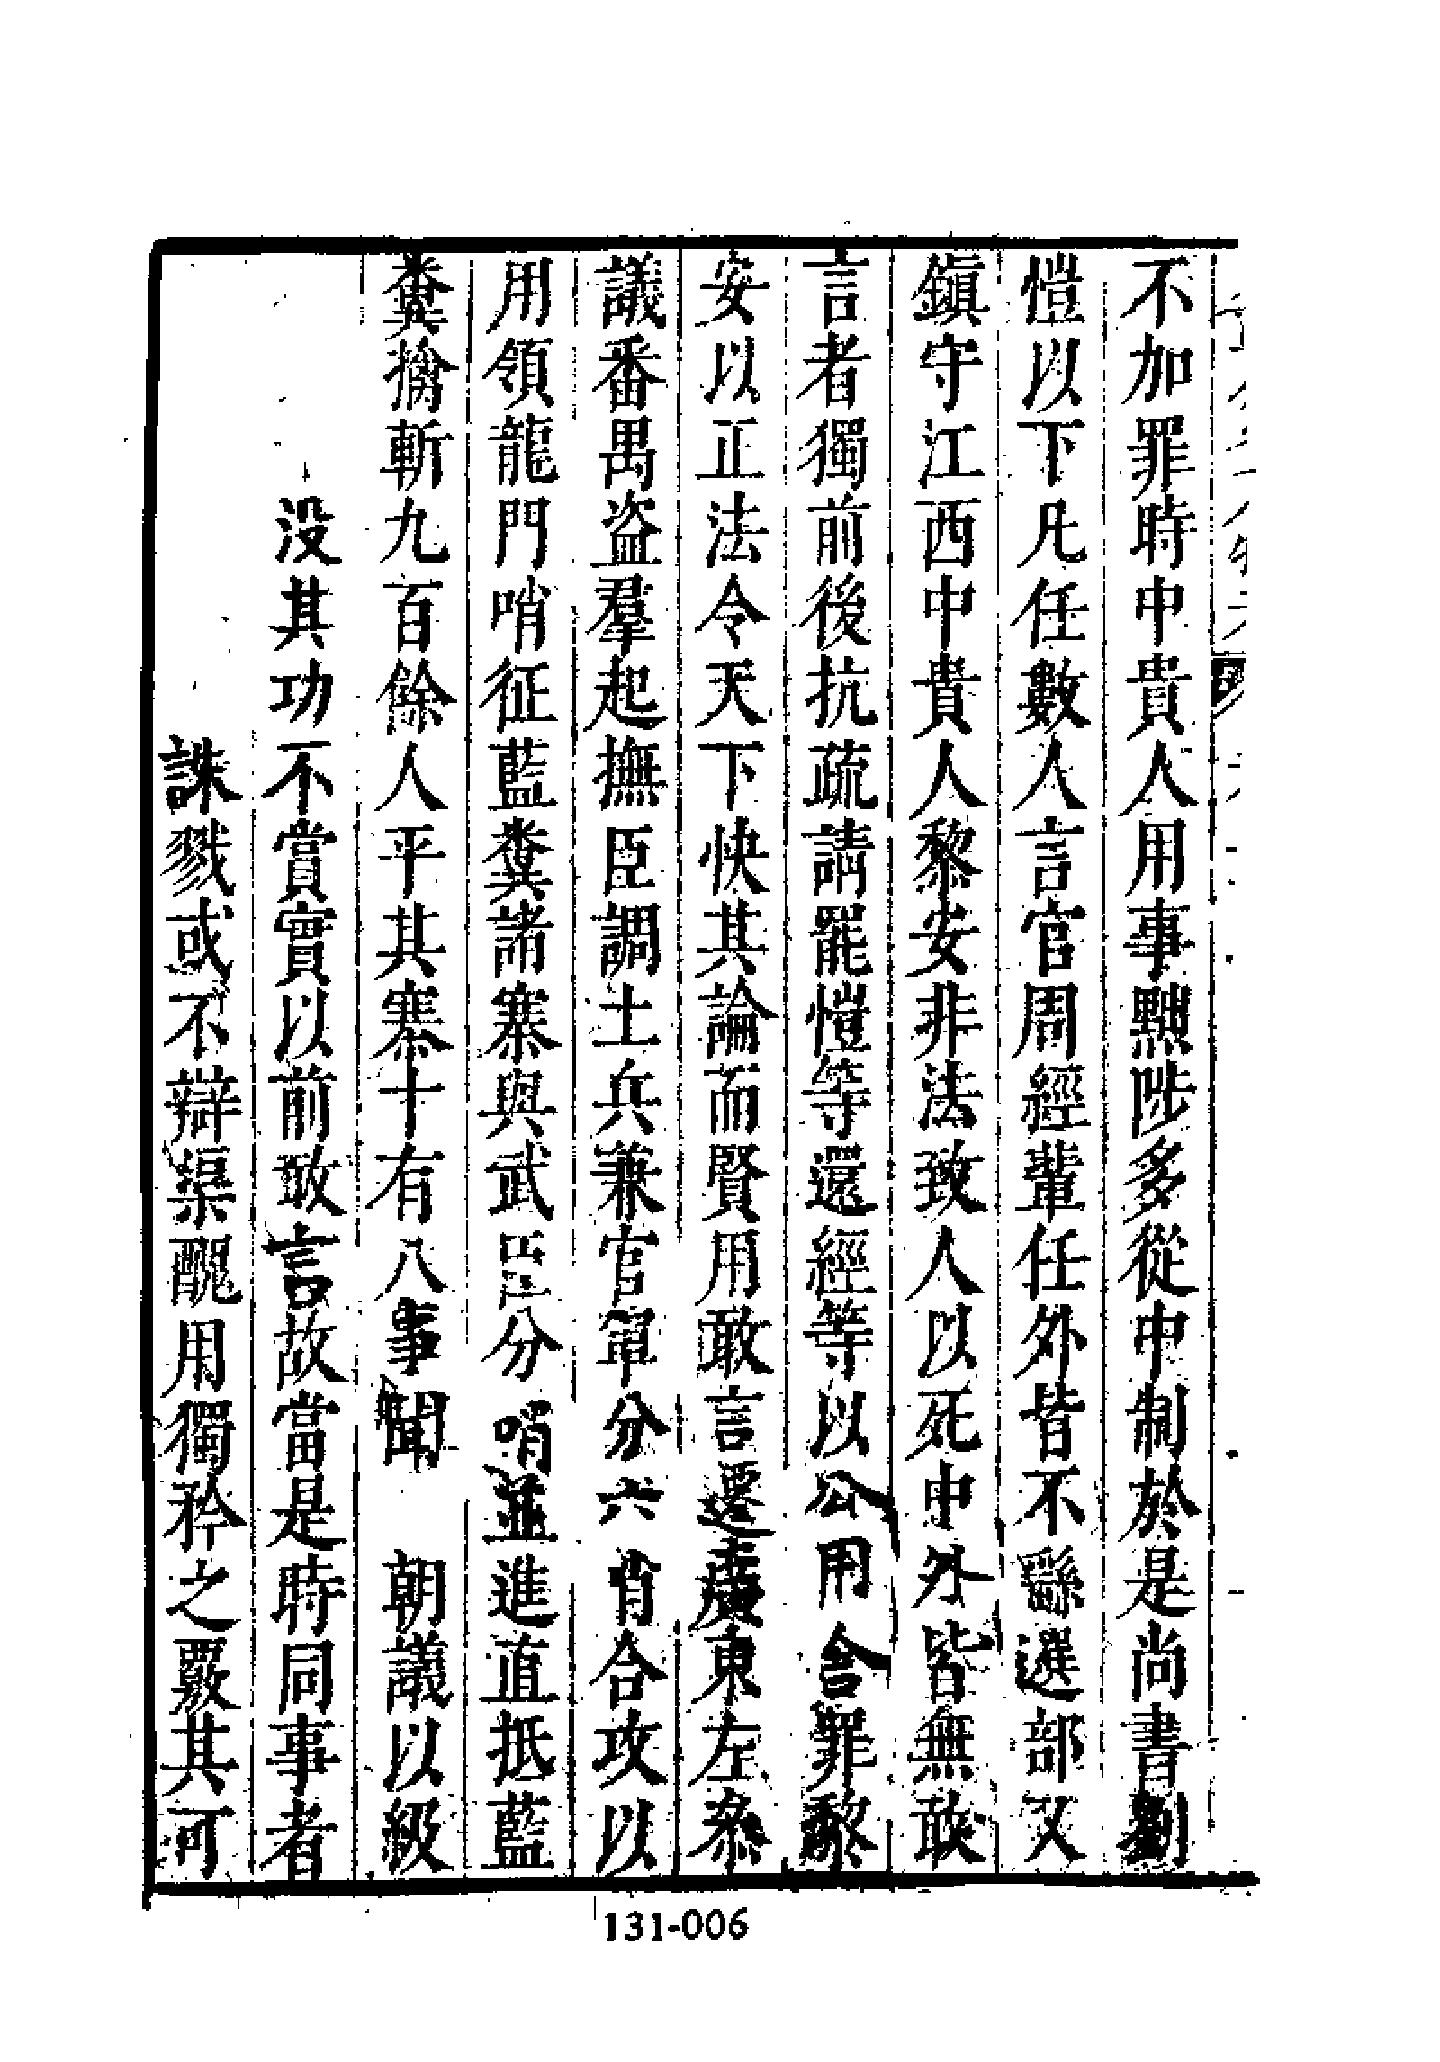 不加罪時中貴人用事黜陟多從中制於是尚書劉
愷以下凡任數人言官周經輩任外皆不繇選部又
鎮守江西中貴人黎安非法致人以死中外皆無敢
言者獨前後抗疏請罷愷等還經等以公用舍罪黎
安以正法令天下快其論而賢用敢言遷廣東左叅
議番禺盜羣起撫臣調土兵兼官軍分六哨合攻以
用領龍門哨征藍糞諸寨與武臣分哨並進直抵藍
糞擒斬九百餘人平其寨十有八事聞 朝議以級
沒其功不賞實以前敢言故當是時同事者
誅戮或不辯渠醜用獨矜之覈其可
131-006